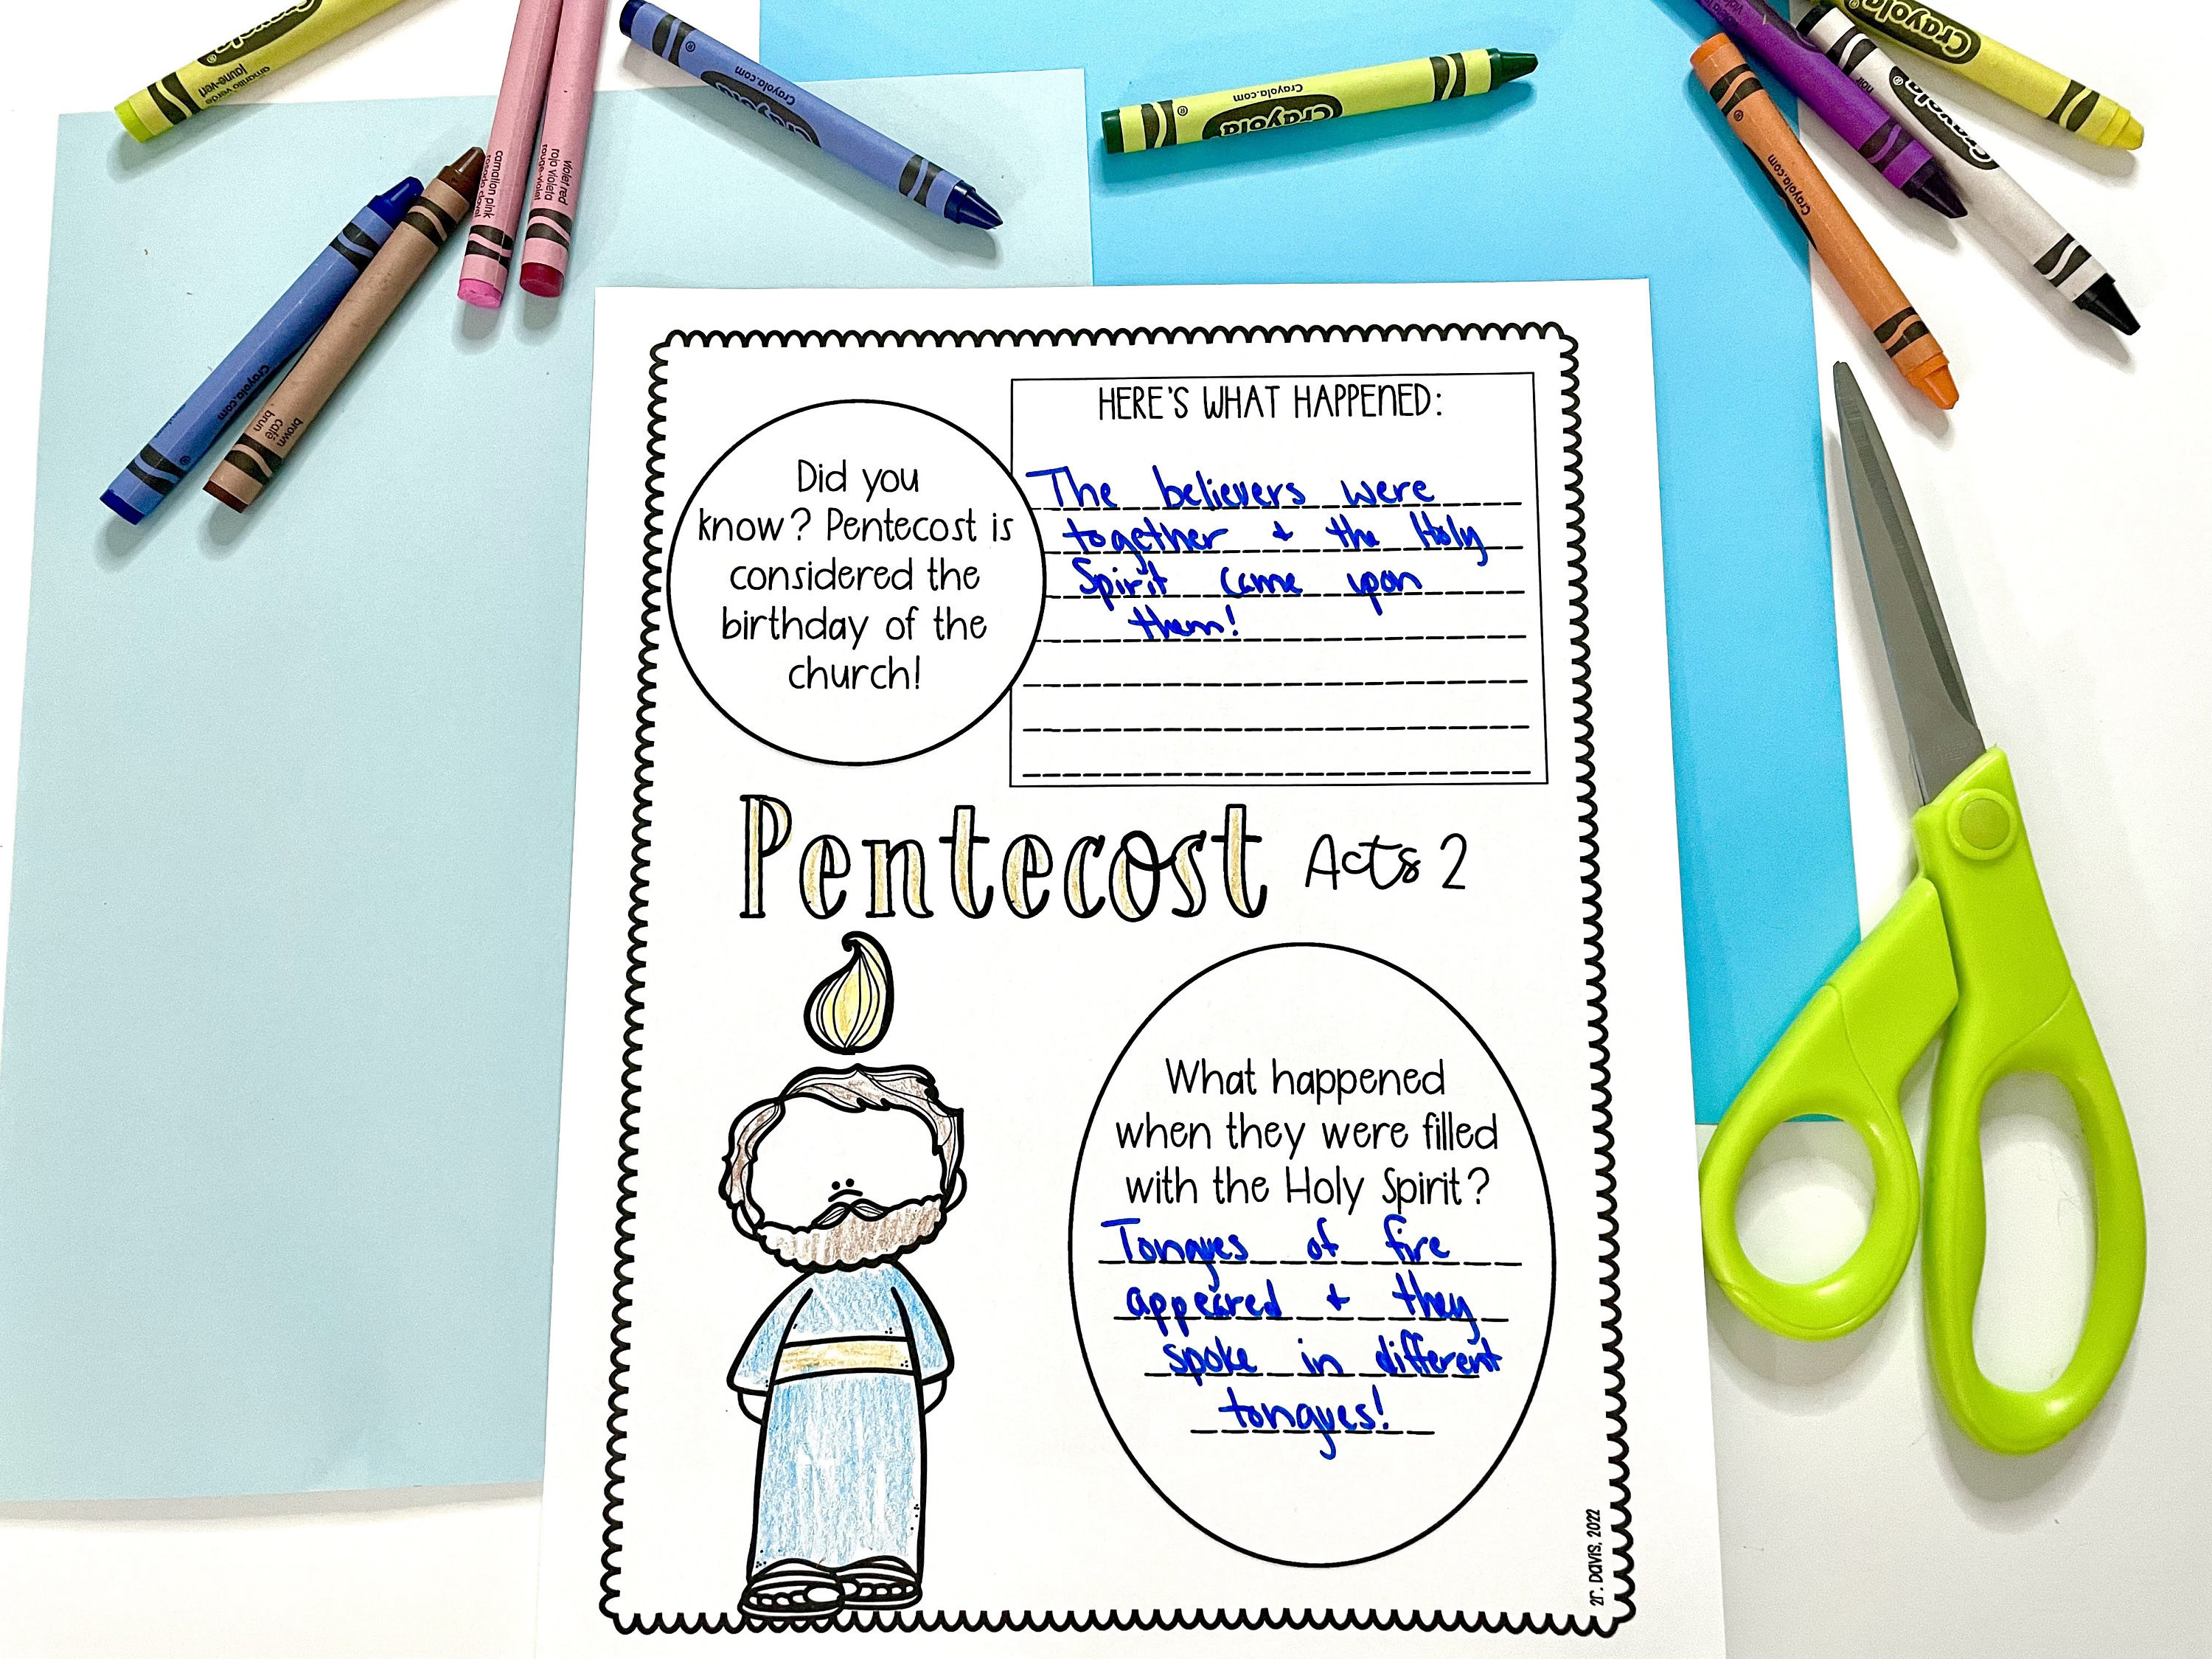 Crayola
amarillo verde
jaune-vert
carnation pink
violet red
rojo violeta
rouge-violet
Crayola.com
Crayola
Crayola.com
Crayola
Crayola
noir
Crayola
Crayola.com
Crayola.com
brown
café
brun
Did you
know? Pentecost is
considered the
birthday of the
church!
HERE'S WHAT HAPPENED:
The believers were
together + the Holy
Spirit came upon
them!
Pentecost Acts 2
What happened
when they were filled
with the Holy Spirit?
Tongues of fire
appeared + they
spoke in different
tongues!
©T. Davis, 2022